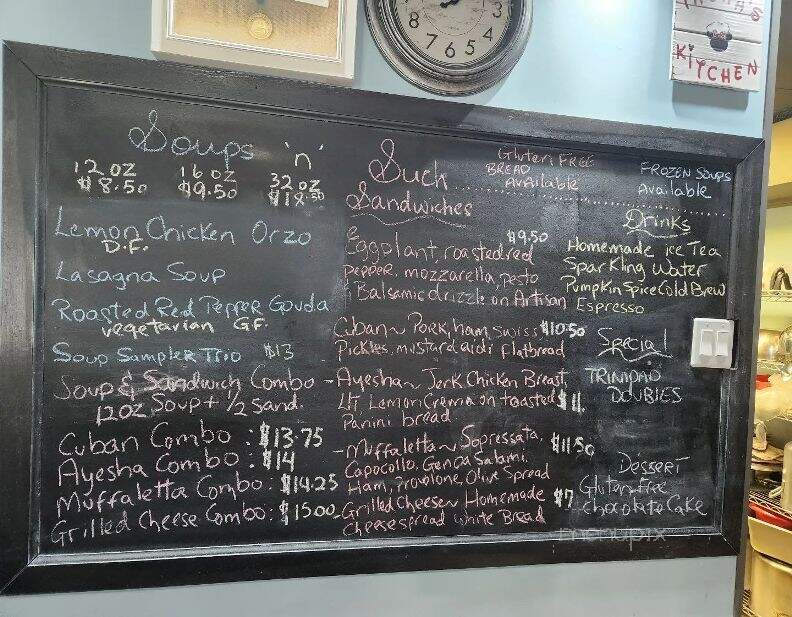 8 7 6 5 4 3
KITCHEN
Soups 'n'
12 oz 16 oz 32 oz
$8.50 $9.50 $18.50
Lemon Chicken Orzo
D.F.
Lasagna Soup
Roasted Red Pepper Gouda
vegetarian GF.
Soup Sampler Trio $13
Soup & Sandwich Combo
12oz Soup + 1/2 Sand.
Cuban Combo : $13.75
Ayesha Combo : $14
Muffaletta Combo : $14.25
Grilled Cheese Combo : $15.00
Such
Sandwiches
Gluten FREE
BREAD
Available
Eggplant, roasted red $9.50
pepper, mozzarella, pesto
& Balsamic drizzle on Artisan
Cuban ~ Pork, ham, swiss, $10.50
Pickles, mustard aioli flatbread
- Ayesha ~ Jerk Chicken Breast,
L/T, Lemon Crema on toasted $11.
Panini bread
- Muffaletta ~ Sopressata, $11.50
Capocollo, Genoa Salami,
Ham, Provolone, Olive Spread
- Grilled Cheese ~ Homemade $7
Cheese spread White Bread
FROZEN SOUPS
Available
Drinks
Homemade ice Tea
Sparkling Water
Pumpkin Spice Cold Brew
Espresso
Special
TRINIDAD
DOUBLES
Dessert
Gluten Free
Chocolate Cake
menupix